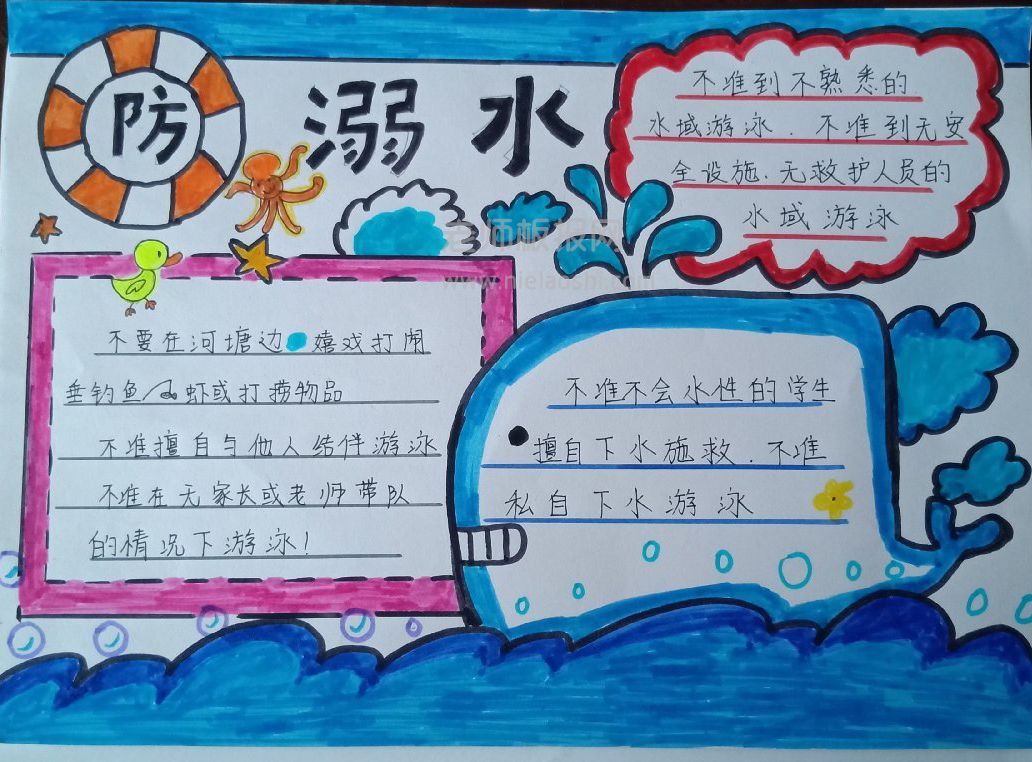 防溺水
不准到不熟悉的
水域游泳．不准到无安
全设施．无救护人员的
水域游泳
不要在河塘边嬉戏打闹
垂钓鱼虾或打捞物品
不准擅自与他人结伴游泳
不准在无家长或老师带队
的情况下游泳！
不准不会水性的学生
擅自下水施救．不准
私自下水游泳
老师板报网